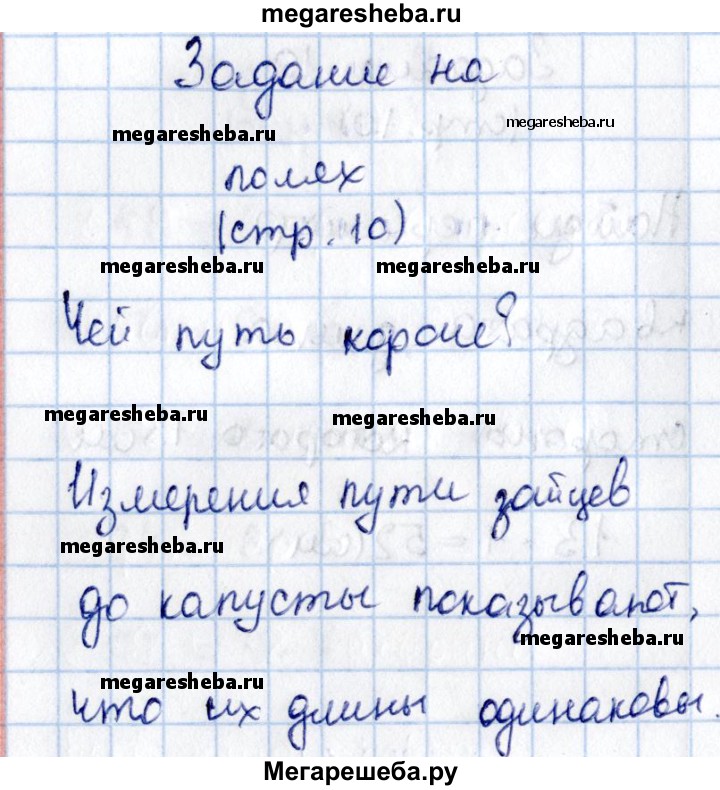 megaresheba.ru
Задание на
megaresheba.ru
megaresheba.ru
полях
(стр. 10)
megaresheba.ru
megaresheba.ru
Чей путь короче?
megaresheba.ru
megaresheba.ru
Измерения пути зайцев
megaresheba.ru
до капусты показывают,
megaresheba.ru
megaresheba.ru
что их длины одинаковы.
Мегарешеба.ру